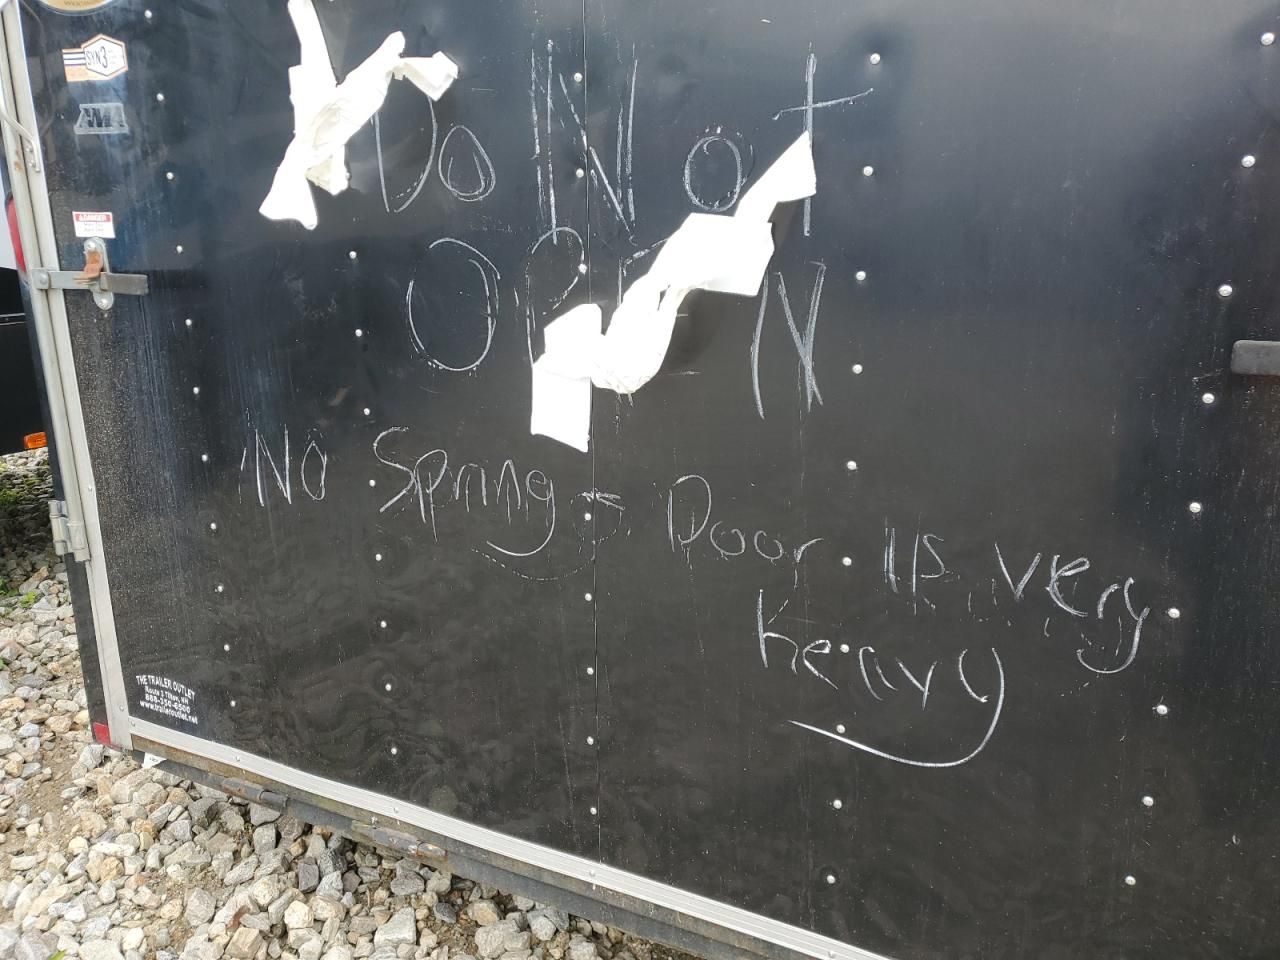 SYN3
AMA
DANGER
Do Not
OPEN
No Spring = Door is very
heavy
THE TRAILER OUTLET
Route 3 Tilton, NH
888-250-6500
www.traileroutlet.net